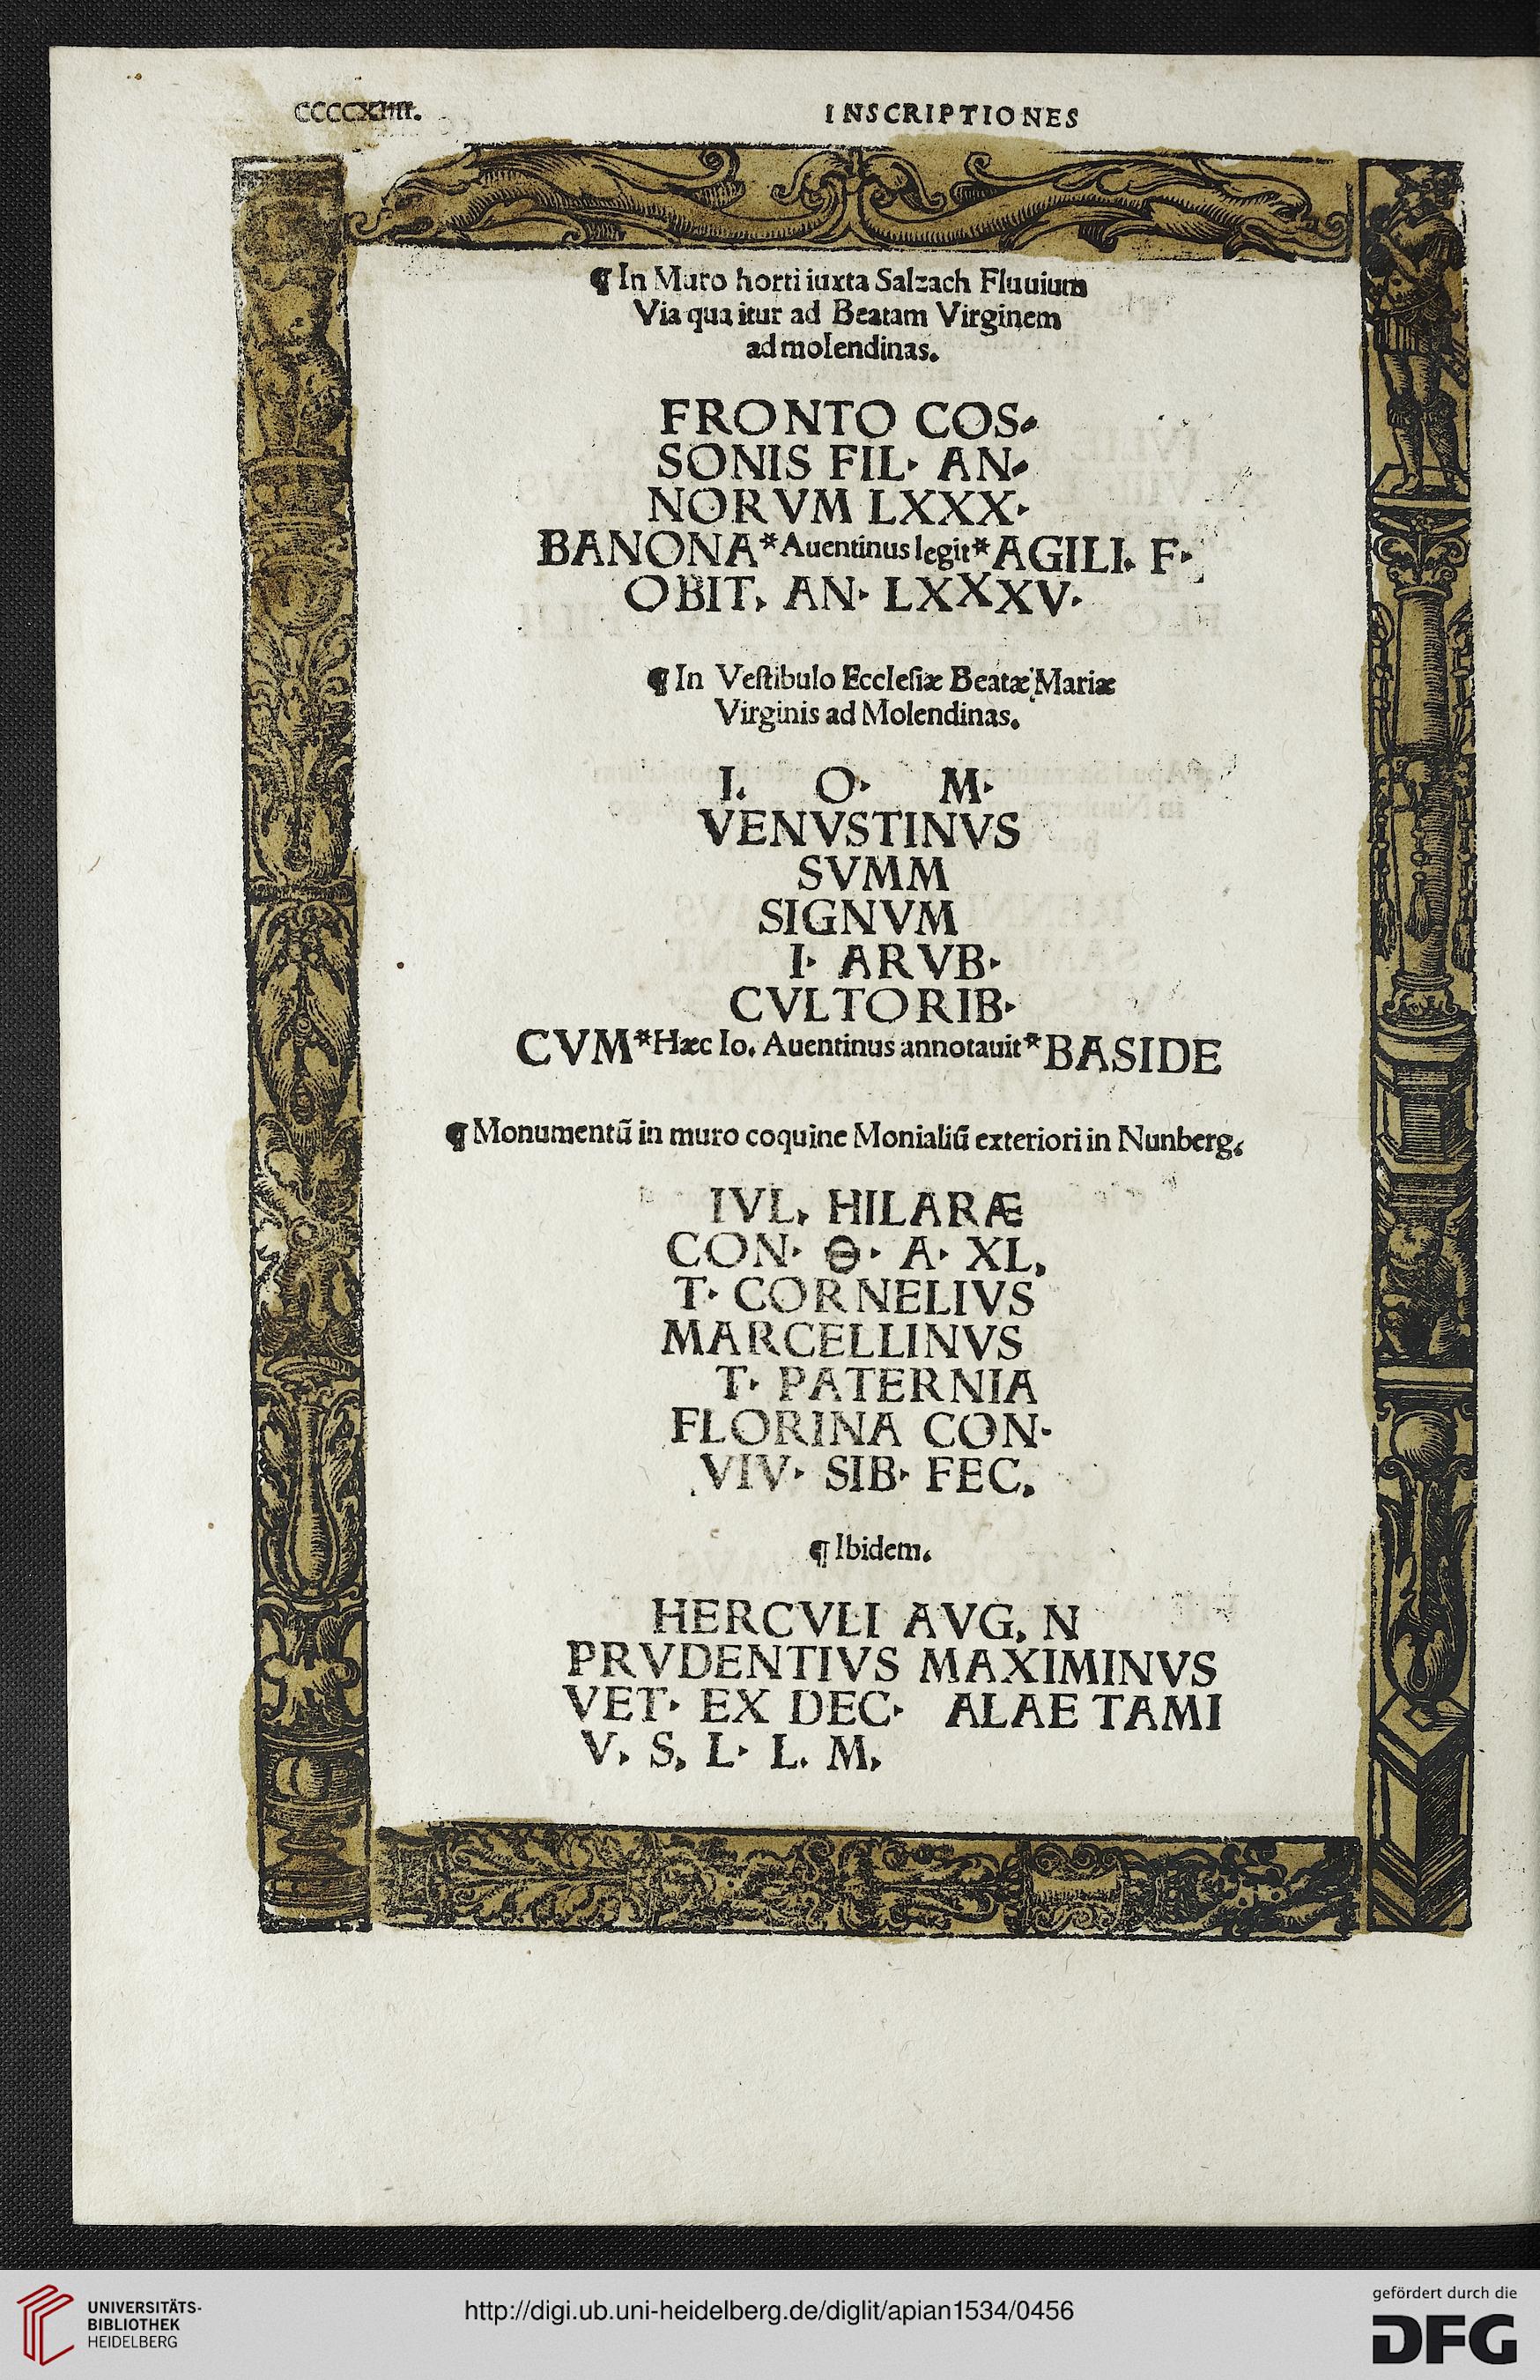 CCCCXIIII.
INSCRIPTIONES
¶ In Muro horti iuxta Salzach Fluuium
Via qua itur ad Beatam Virginem
ad molendinas.
FRONTO COS⸗
SONIS FIL· AN⸗
NORVM LXXX·
BANONA*Auentinus legit*AGILI. F·
OBIT, AN· LXXXV·
¶ In Veſtibulo Eccleſiæ Beatæ Mariæ
Virginis ad Molendinas.
I. O· M·
VENVSTINVS
SVMM
SIGNVM
I· ARVB·
CVLTORIB·
CVM*Hæc Io. Auentinus annotauit*BASIDE
¶ Monumentũ in muro coquine Monialiũ exteriori in Nunberg.
IVL, HILARÆ
CON· Θ· A· XL,
T· CORNELIVS
MARCELLINVS
T· PATERNIA
FLORINA CON·
VIV· SIB· FEC,
¶ Ibidem.
HERCVLI AVG, N
PRVDENTIVS MAXIMINVS
VET· EX DEC· ALAE TAMI
V, S, L· L. M,
UNIVERSITÄTS-
BIBLIOTHEK
HEIDELBERG
http://digi.ub.uni-heidelberg.de/diglit/apian1534/0456
gefördert durch die
DFG